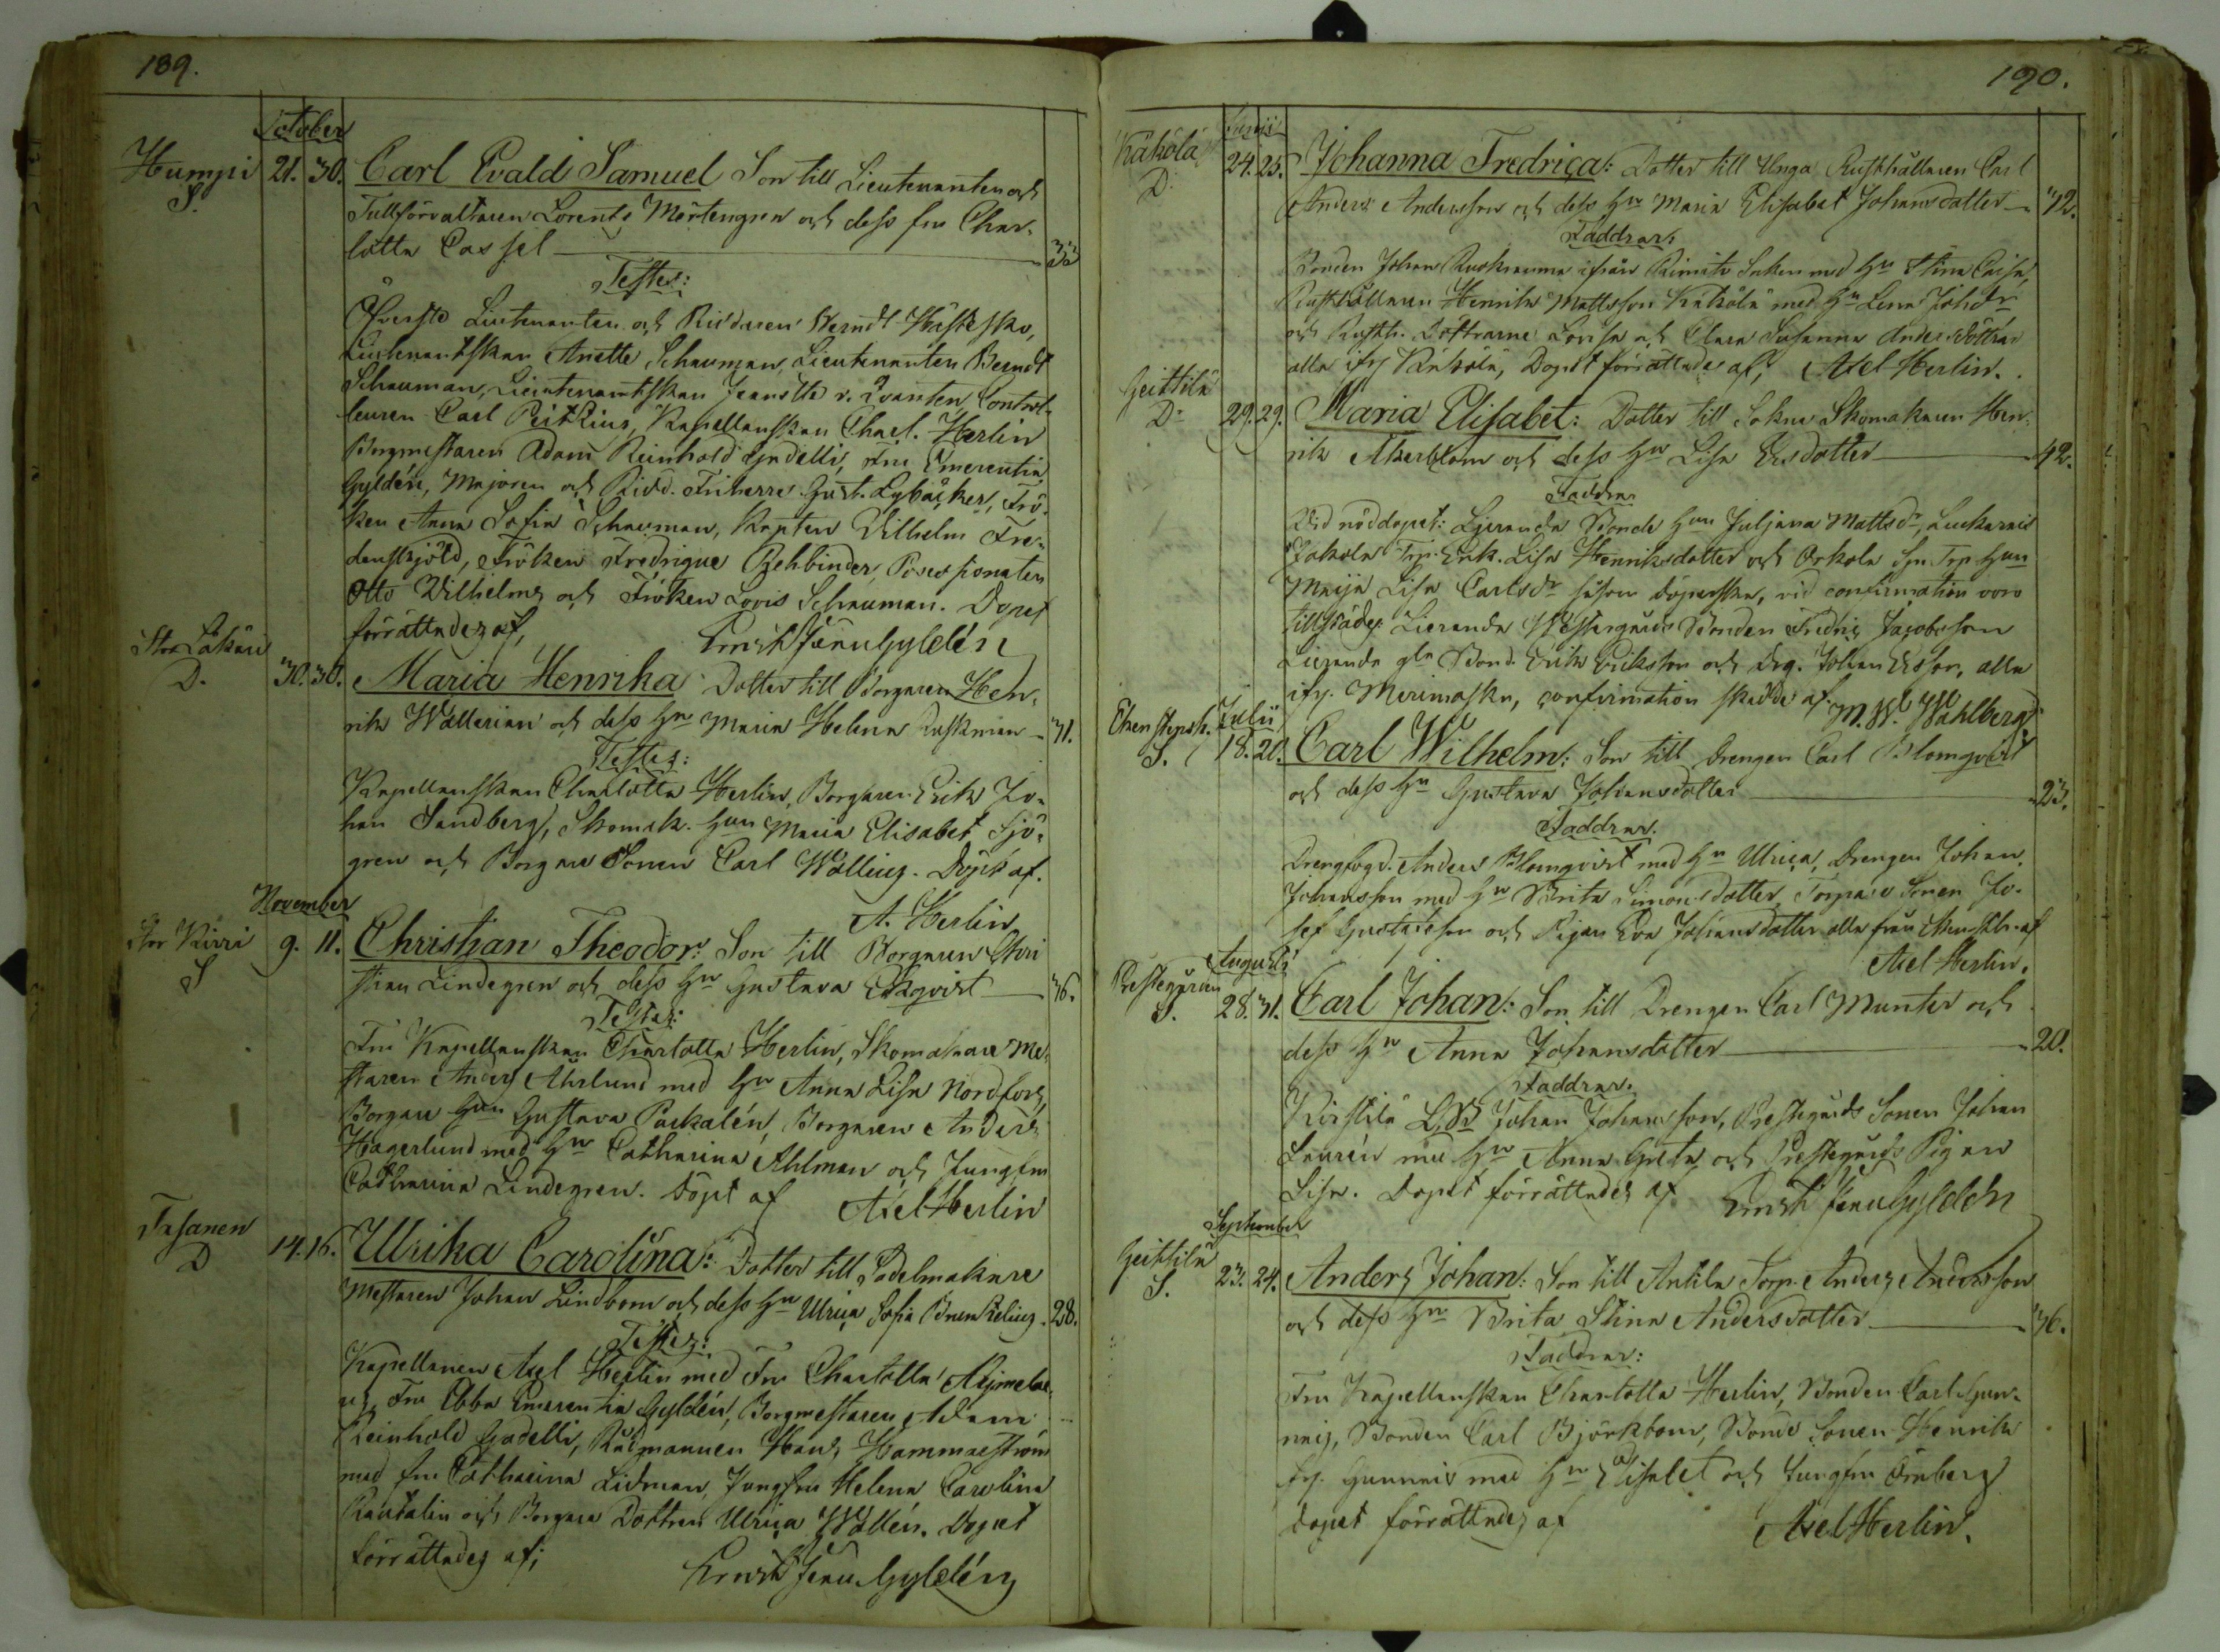 189.
October
Humpi 21. 30. Carl Evald Samuel Son till Lieutenanten och
S. Tullförvaltaren Lorents Mårtengren och dess fru Char-
lotta Cassel 33
Testes:
Öfverste Lieutenanten och Riddaren Berndt Hästesko,
Lieutenantskan Anette Schauman, Lieutenanten Berndt
Schauman, Lieutenantskan Jeanette v. Qvanten, Control-
leuren Carl Peitzius, Kapellanskan Charl. Herlin
Borgmestaren Adam Reinhold Gadelli, Fru Emerentia
Gyldén, Majoren och Ridd. Friherre Gust. Lybäcker, Frö-
ken Anna Sofia Schauman, Kapten Vilhelm Fre-
denskjöld, Fröken Fredrique Rehbinder, Possessionaten
Otto Vilhelms och Fröken Lovis Schauman. Dopet
förrättades af, Ernst Gyldén
Stor Läkäri
D. 30. 30. Maria Henrika Dotter till Borgaren Hen-
rik Wallerian och dess Hu Maria Helena 31.
Testes:
Kapellanskan Charlotta Herlin, Borgaren Erik Jo-
han Sandberg, Skomak. Hun Maria Elisabet Sjö-
gren och Borgare Sonen Carl Walling. Döpt af.
A. Herlin
November
Stor Kirri 9. 11. Christian Theodor: Son till Borgaren Chri
S stian Lindegren och dess Hu Gustava Ekqvist 36.
Testes:
Fru Kapellanskan Charlotta Herlin, Skomakare Me-
staren Anders Ahrlund med Hu Anna Lisa Nordfors,
Borgare Hun Gustava Packalén, Borgaren Anders
Hagerlund med Hu Catharina Ahlman och Jungfru
Catharina Lindegren. Döpt af Axel Herlin
Fasanen
D 14. 16. Ulrika Carolina: Dotter till Sadelmakare
Mestaren Johan Lindbom och dess Hu Ulrica Sofia 28.
Testes:
Kapellanen Axel Herlin med Fru Charlotta Alcimelae-
us, Fru Ebba Emerentia Gyldén, Borgmestaren Adam
Reinhold Gadelli, Rådmannen Hans Hammarström
med fru Catharina Lidman, Jungfru Helena Carolina
och Borgare Dottren Ulrica Wallén. Dopet
förrättades af; Ernst Gyldén
190.
Junii
Käkölä 24. 25. Johanna Fredrica: Dotter till Unga Rusthållaren Carl
D. Anders Andersson och dess Hu Maria Elisabet Johansdotter 42.
Faddrar:
Bonden Johan Ruokrauma ifrån Rimito Socken med Hu Stina Caisa,
Rusthållaren Henrik Mattsson Käkölä med Hu Lena Johsdr
och Rusth. Döttrarne Lovisa och Clara Susanna Anders Döttrar
alla ifr. Käkölä, Dopet förrättades af, Axel Herlin.
Geittilä
D. 29. 29. Maria Elisabet: Dotter till Sokne Skomakaren Hen-
rik Åkerblom och dess Hu Lisa Ersdotter 42.
Faddrar
Vid nöddopet: Lieranda Bonde Hun Juljana Mattsdr,
Trp. Enk. Lisa Henriksdotter och Trp. Hun
Maija Lisa Carlsdr såsom döperska, vid confirmation voro
tillstädes: Lieranda Westergårds Bonden Fredric Jacobsson
Lieranda Bond. Erik Eriksson och Drg. Johan Ersson, alla
ifr. Merimasku, confirmation skedde af. M. W. Wahlberg
Ekenstensh. Julii
S. 18. 20. Carl Wilhelm: Son till Drengen Carl Blomqvist
och dess Hu Gustava Johansdotter 23.
Faddrar.
Drengfogd. Anders Blomqvist med Hu Ulrica, Drengen Johan
Johansson med Hu Brita Simonsdotter, Torpare Sonen Jo-
sef Gustafsson och Pigan Eva Johansdotter alla från af
Axel Herlin.
Augusti
Prestegården
S. 28. 31. Carl Johan: Son till Drengen Carl Munter och
dess Hu Anna Johansdotter 20.
Faddrar.
Kirstilä Johan Johansson, Prestegårds Sonen Johan
Laurén med Hu Anna Greta och Prestegårds Pigan
Lisa. Dopet förrättades af Ernst Gyldén
September
Geittilä 23. 24. Anders Johan: Son till Antila Torp. Anders Andersson
S. och dess Hu Brita Stina Andersdotter 36.
Faddrar:
Fru Kapellanskan Charlotta Herlin, Bonden Carl Gun-
nais, Bonden Carl Björkbom, Bonde Sonen Henrik
fr. Gunnais med Hu Elisabet och Jungfru Örnberg
Dopet förrättades af Axel Herlin.